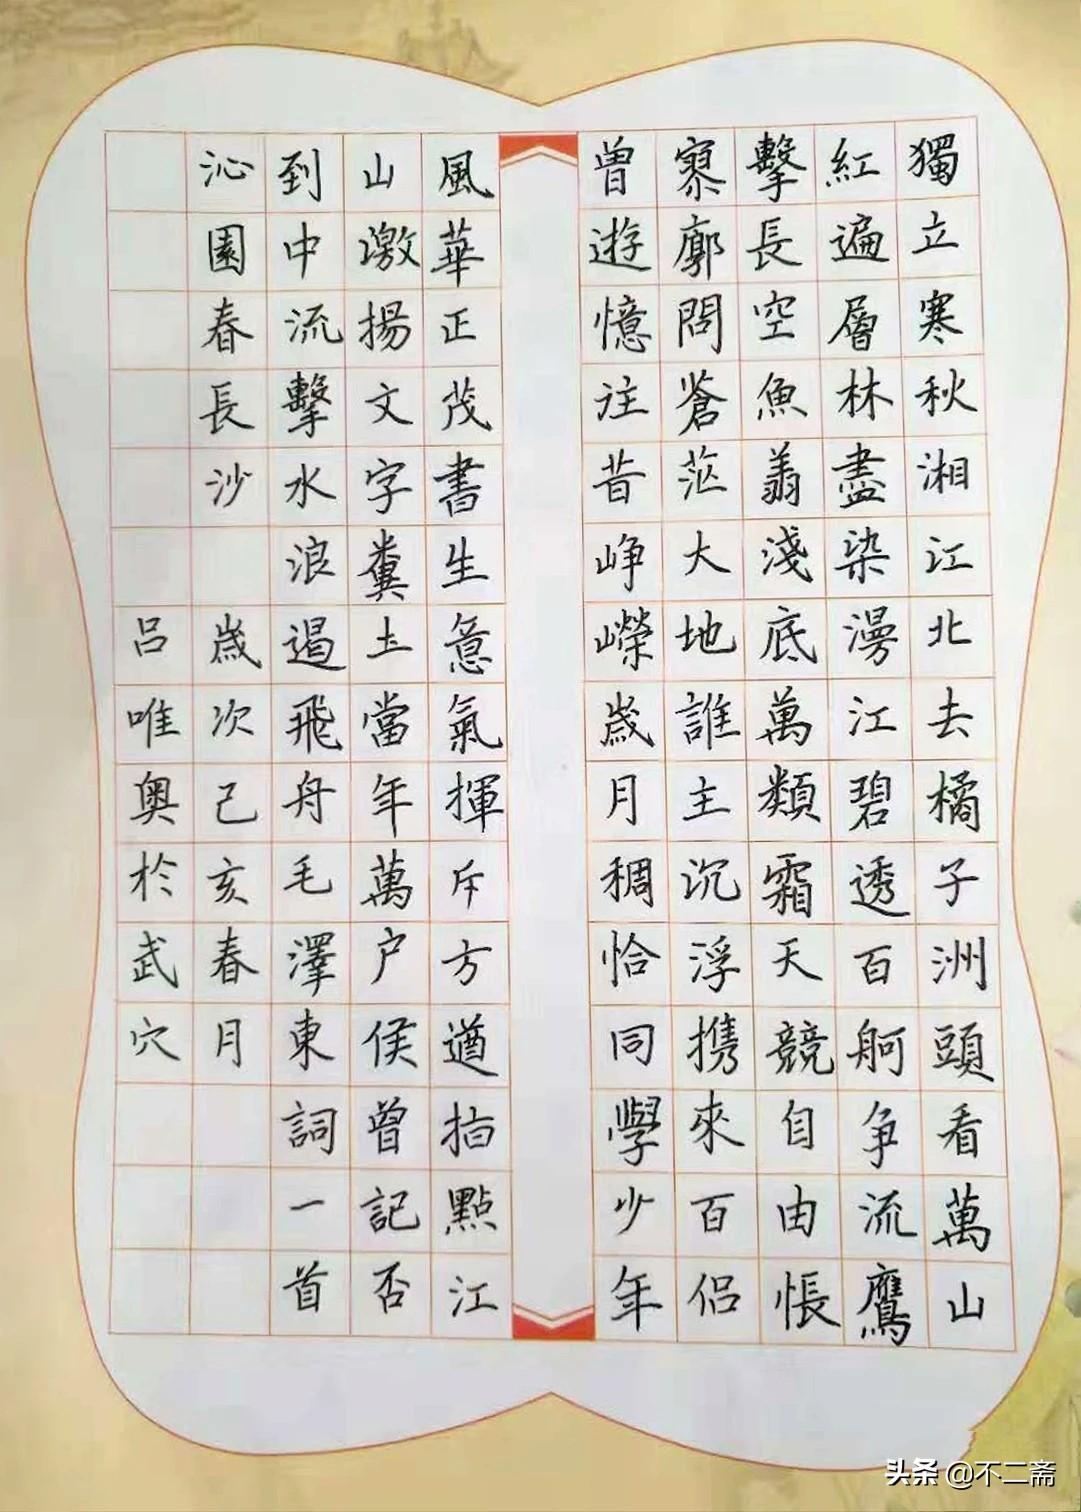 獨立寒秋湘江北去橘子洲頭看萬山
紅遍層林盡染漫江碧透百舸争流鷹
擊長空魚翔淺底萬類霜天競自由悵
寥廓問蒼茫大地誰主沉浮携來百侣
曾遊憶往昔崢嶸歲月稠恰同學少年
風華正茂書生意氣揮斥方遒指點江
山激揚文字糞土當年萬户侯曾記否
到中流擊水浪遏飛舟毛澤東詞一首
沁園春長沙 歲次己亥春月
吕唯奥於武穴
头条 @不二斋